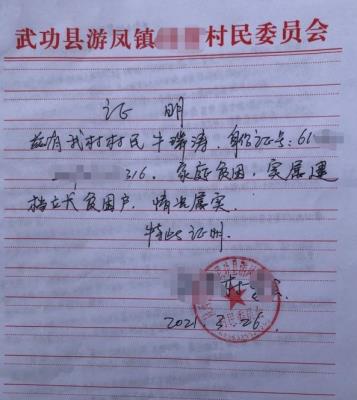 武功县游凤镇 村民委员会
证明
兹有我村村民牛瑞涛,身份证号:61
316. 家庭贫困,实属建
档立卡贫困户,情况属实.
特此证明.
村
2021.3.26.
武功县游凤
村民委员会